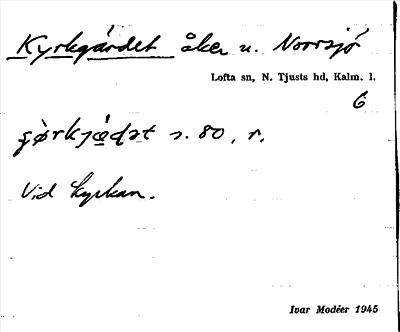 Kyrkgärdet åker u. Norrsjö
Lofta sn, N. Tjusts hd, Kalm. l.
6
s. 80, r.
Vid kyrkan.
Ivar Modéer 1945